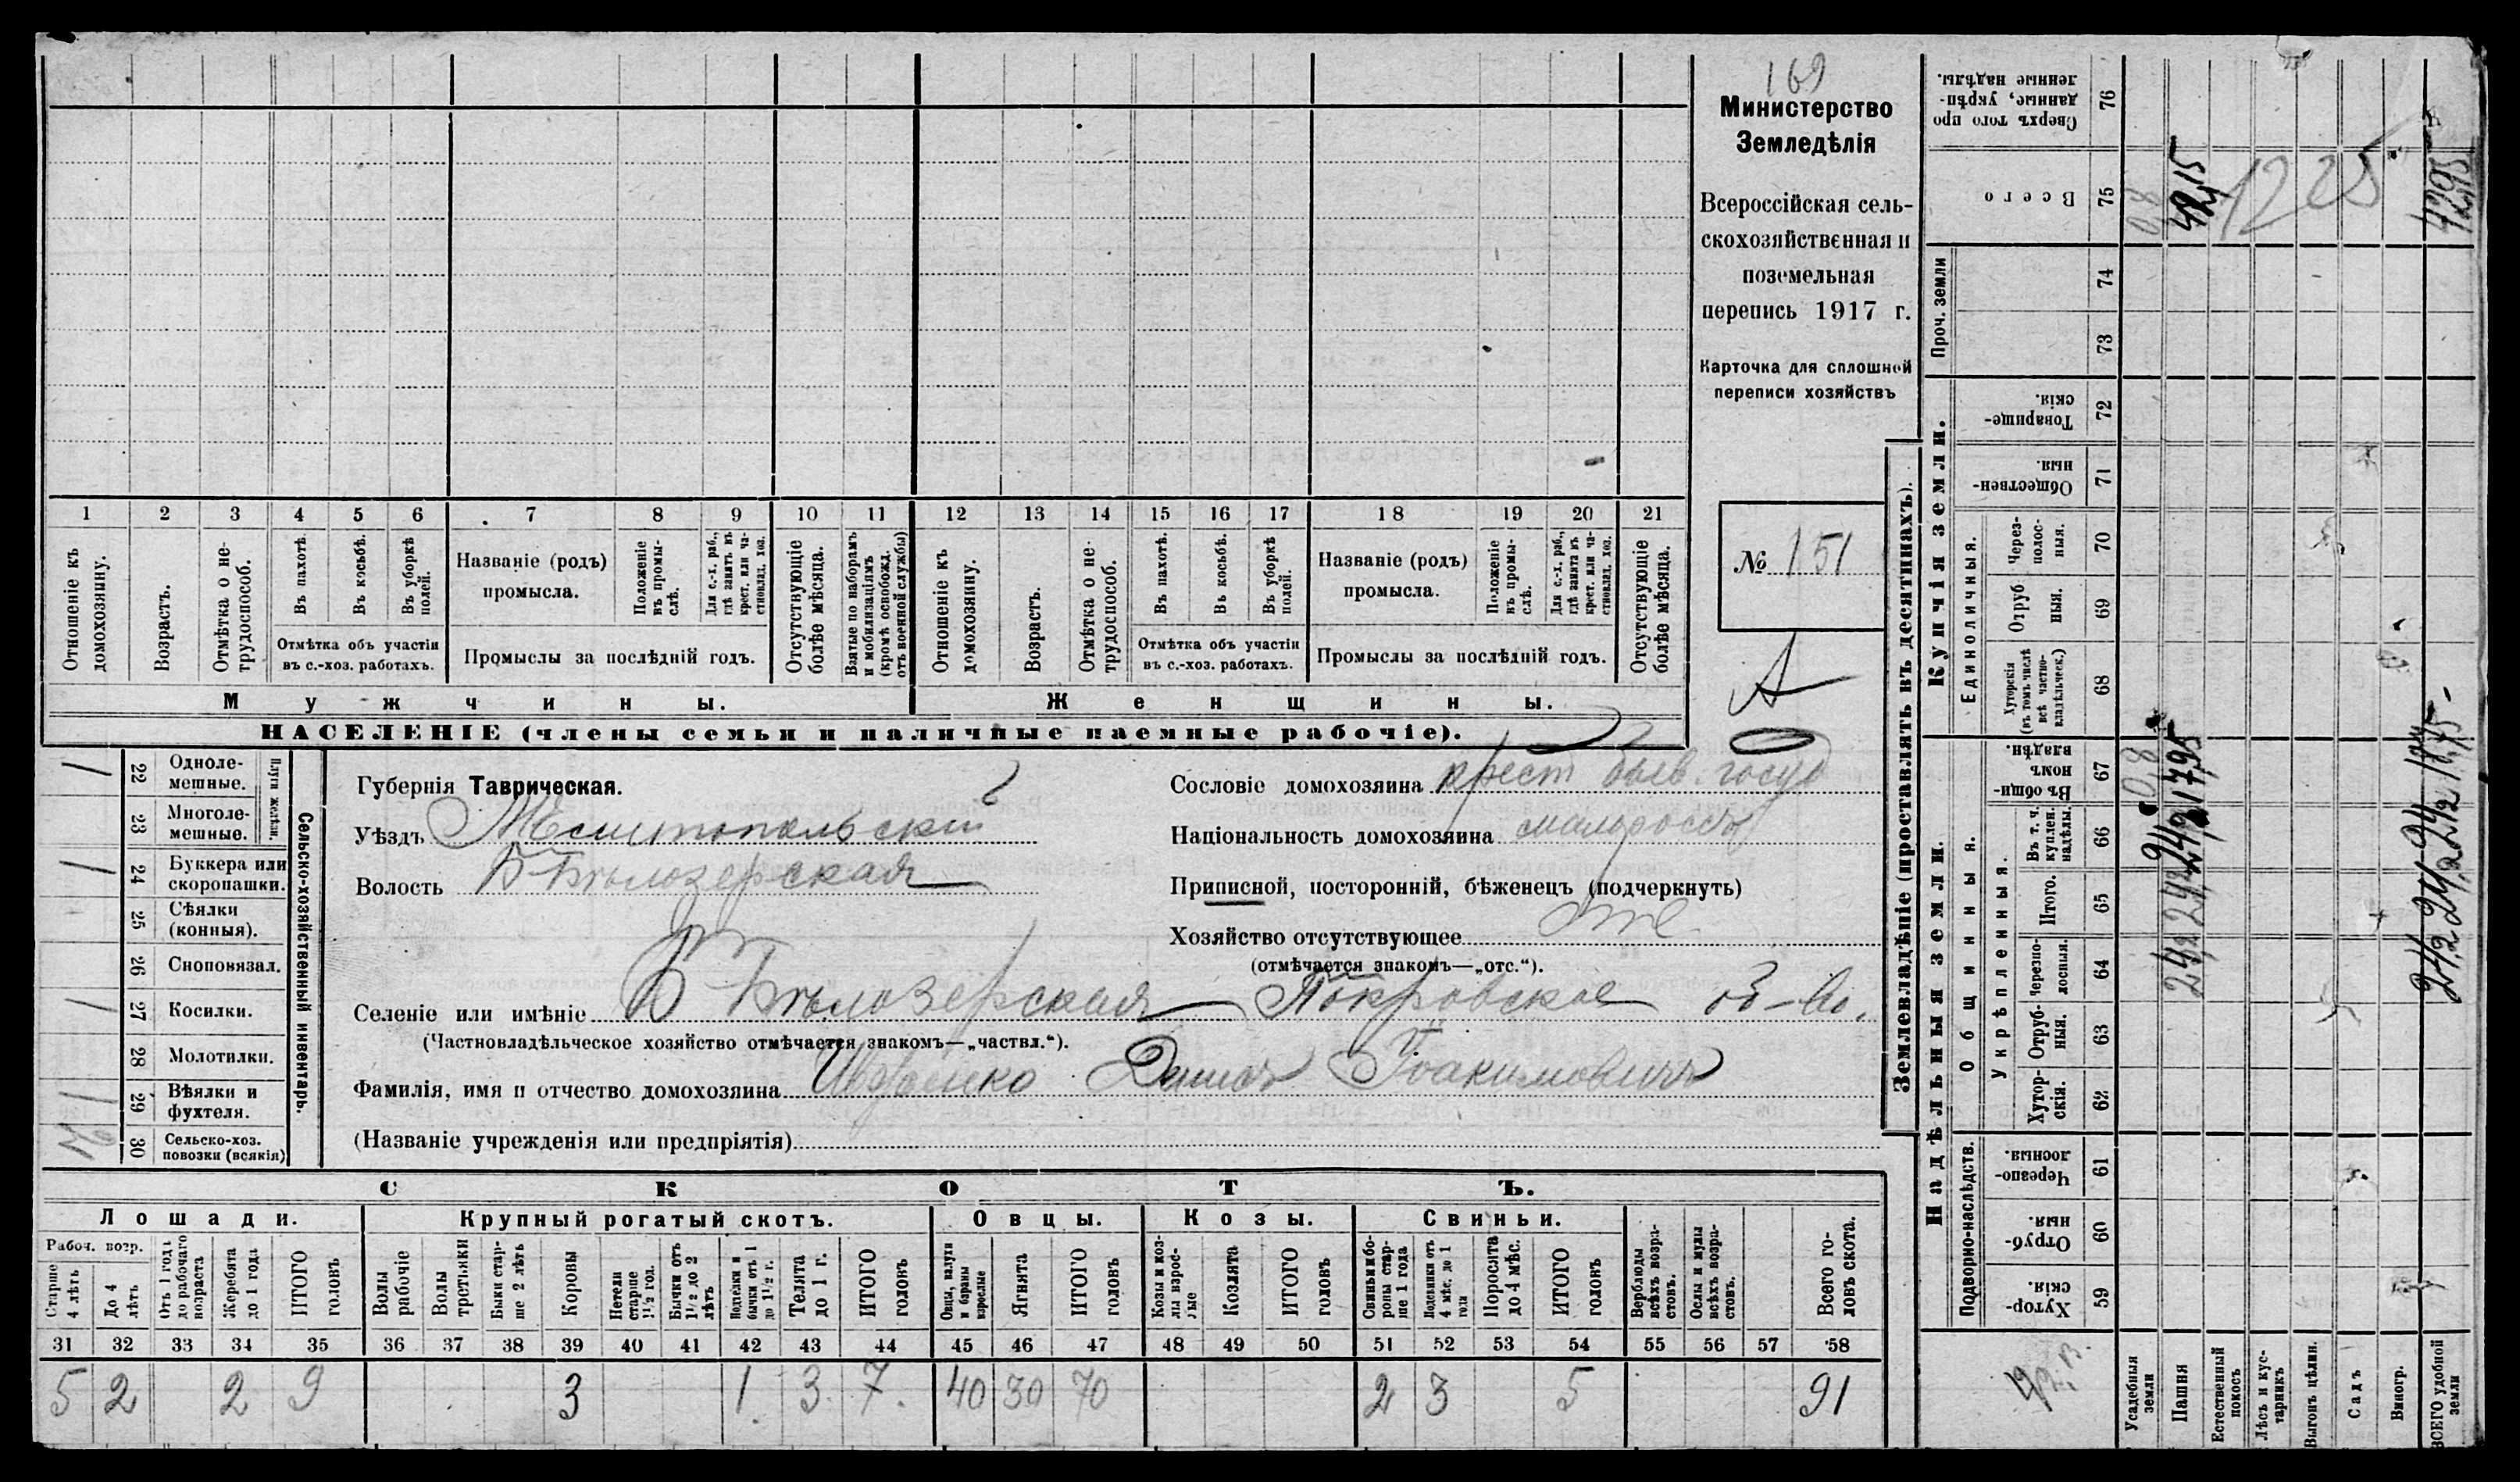 169
Министерство
Земледѣлія
Всероссійская сель-
скохозяйственная и
поземельная
перепись 1917 г.
Карточка для сплошной
переписи хозяйствъ
№ 151
А
1 2 3 4 5 6 7 8 9 10 11 12 13 14 15 16 17 18 19 20 21
Отношеніе къ домохозяину.
Возрастъ.
Отмѣтка о не-трудоспособ.
Въ пахотѣ.
Въ косьбѣ.
Въ уборкѣ полей.
Отмѣтка объ участіи
въ с.-хоз. работахъ.
Названіе (родъ)
промысла.
Положеніе въ промы-слѣ.
Для с.-х. раб., гдѣ занятъ въ крест. или ча-стновлад. хоз.
Промыслы за послѣдній годъ.
Отсутствующіе болѣе мѣсяца.
Взятые по наборамъ и мобилизаціямъ (кромѣ освобожд. отъ военной службы)
Отношеніе къ домохозяину.
Возрастъ.
Отмѣтка о не-трудоспособ.
Въ пахотѣ.
Въ косьбѣ.
Въ уборкѣ полей.
Отмѣтка объ участіи
въ с.-хоз. работахъ.
Названіе (родъ)
промысла.
Положеніе въ промы-слѣ.
Для с.-х. раб., гдѣ занята въ крест. или ча-стновлад. хоз.
Промыслы за послѣдній годъ.
Отсутствующіе болѣе мѣсяца.
Мужчины.
Женщины.
НАСЕЛЕНІЕ (члены семьи и наличные наемные рабочіе).
Сельско-хозяйственный инвентарь.
Плуги желѣзн.
1 22 Одноле-мешные.
23 Многоле-мешные.
1 24 Буккера или скоропашки.
25 Сѣялки (конныя).
26 Сноповязал.
1 27 Косилки.
28 Молотилки.
1 29 Вѣялки и фухтеля.
30 Сельско-хоз. повозки (всякія)
Губернія Таврическая.
Уѣздъ Мелитопольскій
Волость Б Бѣлозерская
Сословіе домохозяина крест бывв. госуд
Національность домохозяина малороссъ
Приписной, посторонній, бѣженецъ (подчеркнуть)
Хозяйство отсутствующее
(отмѣчается знакомъ—„отс.“).
Селеніе или имѣніе Б Бѣлозерская Покровское об-во.
(Частновладѣльческое хозяйство отмѣчается знакомъ—„частвл.“).
Фамилія, имя и отчество домохозяина Денисъ Іоакимовичъ
(Названіе учрежденія или предпріятія)
СКОТЪ.
Лошади. Крупный рогатый скотъ. Овцы. Козы. Свиньи.
Рабоч. возр.
Старше 4 лѣтъ
До 4 лѣтъ
Отъ 1 года до рабочаго возраста
Жеребята до 1 года
ИТОГО головъ
Волы рабочіе
Волы третьяки
Быки стар-ше 2 лѣтъ
Коровы
Нетели старше 1½ год.
Бычки отъ 1½ до 2 лѣтъ
Подтелки и бычки отъ 1 до 1½ г.
Телята до 1 г.
ИТОГО головъ
Овцы, валухи и бараны взрослые
Ягнята
ИТОГО головъ
Козы и коз-лы взрос-лые
Козлята
ИТОГО головъ
Свиньи и бо-ровы стар-ше 1 года
Подсвинки отъ 4 мѣс. до 1 года
Поросята до 4 мѣс.
ИТОГО головъ
Верблюды всѣхъ возра-стовъ.
Ослы и мулы всѣхъ возра-стовъ.
Всего го-ловъ скота.
31 32 33 34 35 36 37 38 39 40 41 42 43 44 45 46 47 48 49 50 51 52 53 54 55 56 57 58
5 2 2 9 3 1. 3. 7. 40 30 70 2 3 5 91
Землевладѣніе (проставлять въ десятинахъ).
Надѣльныя земли.
Купчія земли.
Проч. земли
Подворно-наслѣдств.
Общинныя.
Укрѣпленныя.
Единоличныя.
Хутор-скія 59
Отруб-ныя. 60
Черезпо-лосныя. 61
Хутор-скія. 62
Отруб-ныя. 63
Черезпо-лосныя. 64
Итого. 65
Въ т. ч. куплен. надѣлы. 66
Въ общи-номъ владѣн. 67
Хуторскія (въ томъ числѣ всѣ частно-владѣльческ.) 68
Отруб ныя. 69
Через-полос-ныя. 70
Обществен-ныя. 71
Товарище-скія. 72
73
74
Всего 75
Сверхъ того про данные, укрѣп-ленные надѣлы. 76
Усадебныя земли 0,8 0,8
Пашня
Естественный покосъ
Лѣсъ и кус-тарникъ
Выгонъ цѣлин.
Садъ
Виногр.
ВСЕГО удобной земли
1225